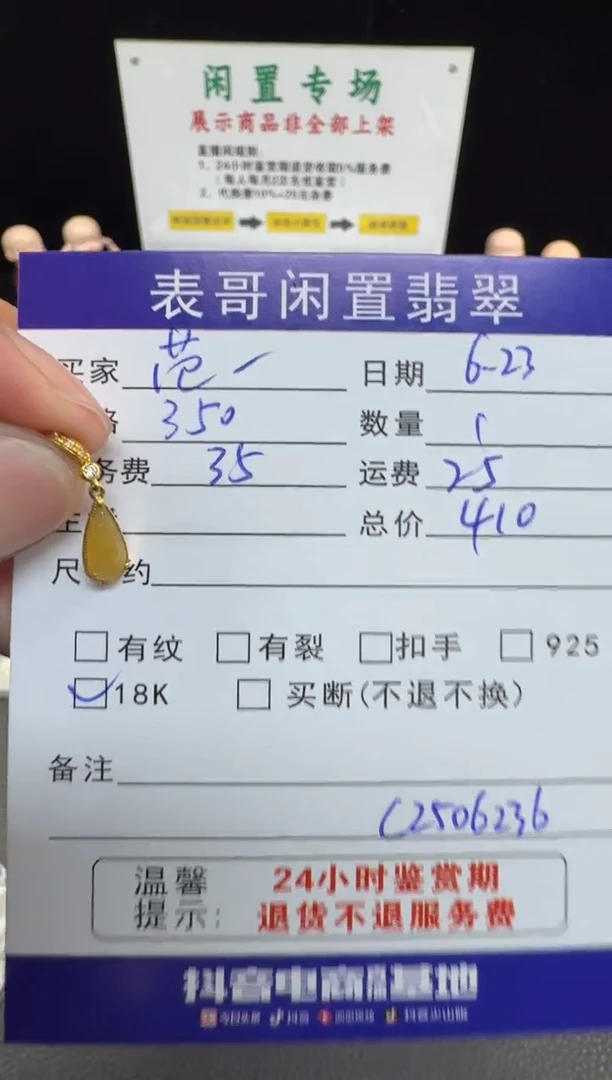 闲置专场
展示商品非全部上架
表哥闲置翡翠
买家 范一 日期 6-23
350 数量 1
务费 35 运费 25
总价 410
尺 约
有纹 有裂 扣手 925
18K 买断(不退不换)
备注
C2506236
温馨 24小时鉴赏期
提示: 退货不退服务费
抖音电商 基地